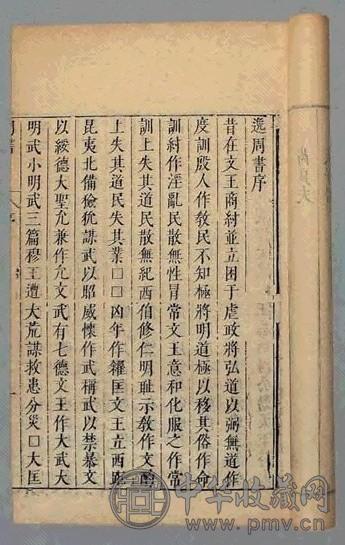 逸周書序
昔在文王商紂並立困于虐政將弘道以弼無道作
度訓殷人作敎民不知極將明道極以移其俗作命
訓紂作淫亂民散無性冒常文王意和化服之作常
訓上失其道民散無紀西伯修仁明耻示敎作文酌
上失其道民失其業□□凶年作糴匡文王立西距
昆夷北備獫狁謀武以昭威懷作武稱武以禁暴文
以綏德大聖允兼作允文武有七德文王作大武大
明武小明武三篇穆王遭大荒謀救患分災□大匡
中华收藏网
www.pmv.cn